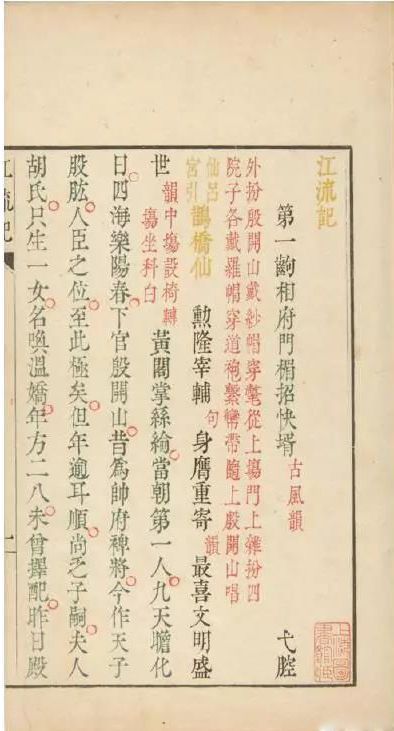 江流記
第一齣相府門楣招快壻 古風韻 弋腔
外扮殷開山戴紗帽穿氅從上場門上雜扮四
院子各戴羅帽穿道袍繫鸞帶隨上殷開山唱
仙呂宮引 鵲橋仙 勲隆宰輔句 身膺重寄韻 最喜文明盛
世韻中塲設椅轉塲坐科白 黃閣掌絲綸當朝第一人九天瞻化
日四海樂陽春下官殷開山昔爲帥府裨將今作天子
股肱人臣之位至此極矣但年逾耳順尚乏子嗣夫人
胡氏只生一女名喚溫嬌年方二八未曾擇配昨日殿
江流記 一